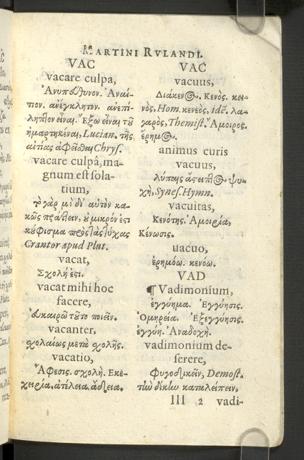 MARTINI RVLANDI.
VAC
vacare culpa,
Ἀνυπόθυνον. Ἀναί-
τιον. ἀνέγκλητον. ἀνεπί-
ληπτον εἶναι. Ἔξω εἶναι τοῦ
ἡμαρτηκέναι, Lucian. τῆς
αἰτίας ἀφεῖσθαι Chrys.
vacare culpâ, ma-
gnum est sola-
tium,
τὸ γὰρ μὴ δι' αὑτὸν κα-
κῶς πράττειν, οὐ μικρόν ἐστι
κούφισμα πρὸς τὰς τύχας
Crantor apud Plut.
vacat,
Σχολή ἐστι.
vacat mihi hoc
facere,
εὐκαιρῶ τοῦτο ποιεῖν.
vacanter,
σχολαίως μετὰ σχολῆς.
vacatio,
Ἄφεσις. σχολή. Ἐκε-
χειρία. ἀτέλεια. ἄδεια.
VAC
vacuus,
Διάκενος. Κενός. κει-
νός. Hom. κενεός. Idē. λα-
γαρός. Themist. Ἄμοιρος.
ἔρημος.
animus curis
vacuus,
λύπης ψυ-
χή. Synes. Hymn.
vacuitas,
Κενότης. Ἀμοιρία,
Κίνωσις.
uacuo,
ἐρημόω. κενόω.
VAD
¶ Vadimonium,
ἐγγύημα. Ἐγγύησις.
Ὁμηρεία. Ἐξεγγύησις.
ἐγγύη. Ἀναδοχή.
vadimonium de-
serere,
φυγοδικεῖν, Demost.
τὴν δίκην καταλείπειν.
III 2 vadi-